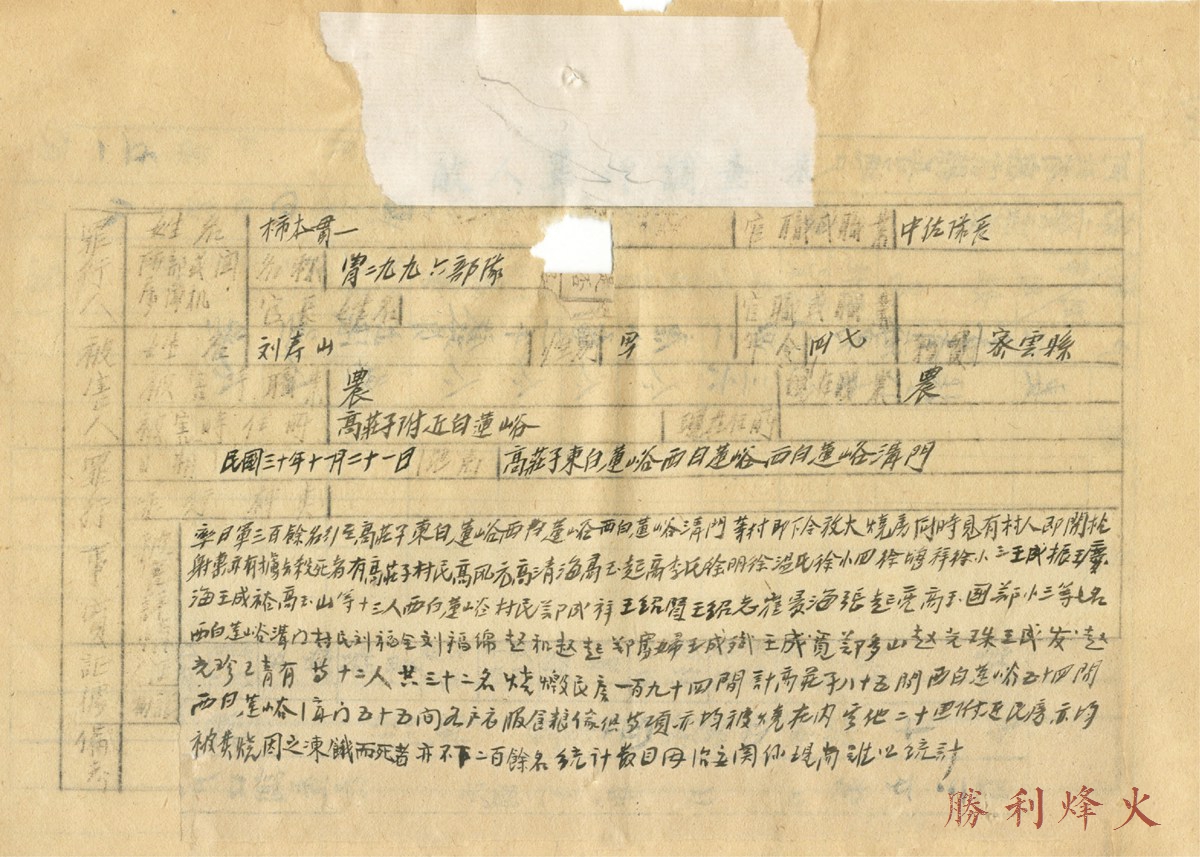 罪行人 姓名 柿本貫一 官職或職業 中佐隊長
名称 胄二九九六部隊
官長姓名 官職或職業
被害人 姓名 刘寿山 性別 男 年令 四七 籍貫 密雲縣
被害時職業 農 現在職業 農
被害時住所 高莊子附近白蓮峪 現在住所
日期 民國三十年十月二十一日 高莊子東白蓮峪西白蓮峪西白蓮峪溝門
罪行
率日軍三百餘名引至高莊子東白蓮峪西白蓮峪西白蓮峪溝門等村即下令放大燒房同時見有村人即開槍
射擊 殺死者有高莊子村民高风元高清海高玉起高李氏徐明徐温氏徐小四徐 祥徐小三王成振王慶
海王成裕高玉山等十三人西白蓮峪村民郭成祥王紹閏王紹忠崔景海張起亮高玉国郭小三等七名
西白莲峪溝门村民刘福全刘福綿赵和赵起郑寡婦王成 王成寬郭多山赵光珠王成发赵
光珍王青有等十二人共三十二名燒燬民房一百九十四間計高莊子八十五間西白蓮峪五十四間
西白莲峪溝门五十五间各户衣服食粮傢俱等項亦均被燒在内 他二十 附近民房亦均
被焚燒因之凍餓而死者亦不下二百餘名統计数目 統計
勝利烽火